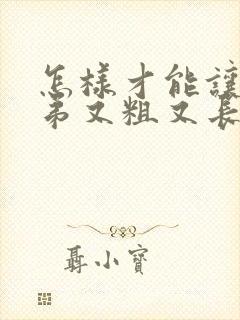 怎样才能讓
弟又粗又長
聶小寶